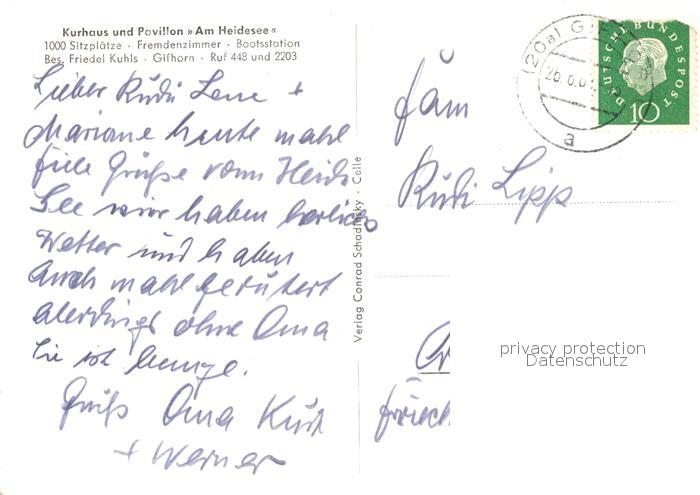 Kurhaus und Pavillon »Am Heidesee«
1000 Sitzplätze · Fremdenzimmer · Bootsstation
Bes. Friedel Kuhls · Gifhorn · Ruf 448 und 2203
Lieber Rudi Lene +
Mariane heute mahl
fiele Grüße vom Heide
See wir haben herlich
Wetter und haben
Auch mahl gerudert
alerdings ohne Oma
Sie ist bange.
Gruß Oma Kurt
+ Werner
Verlag Conrad Schadinsky · Celle
(20a)
26.6.6
a
DEUTSCHE BUNDESPOST
10
Fam
Rudi Lipp
privacy protection
Datenschutz